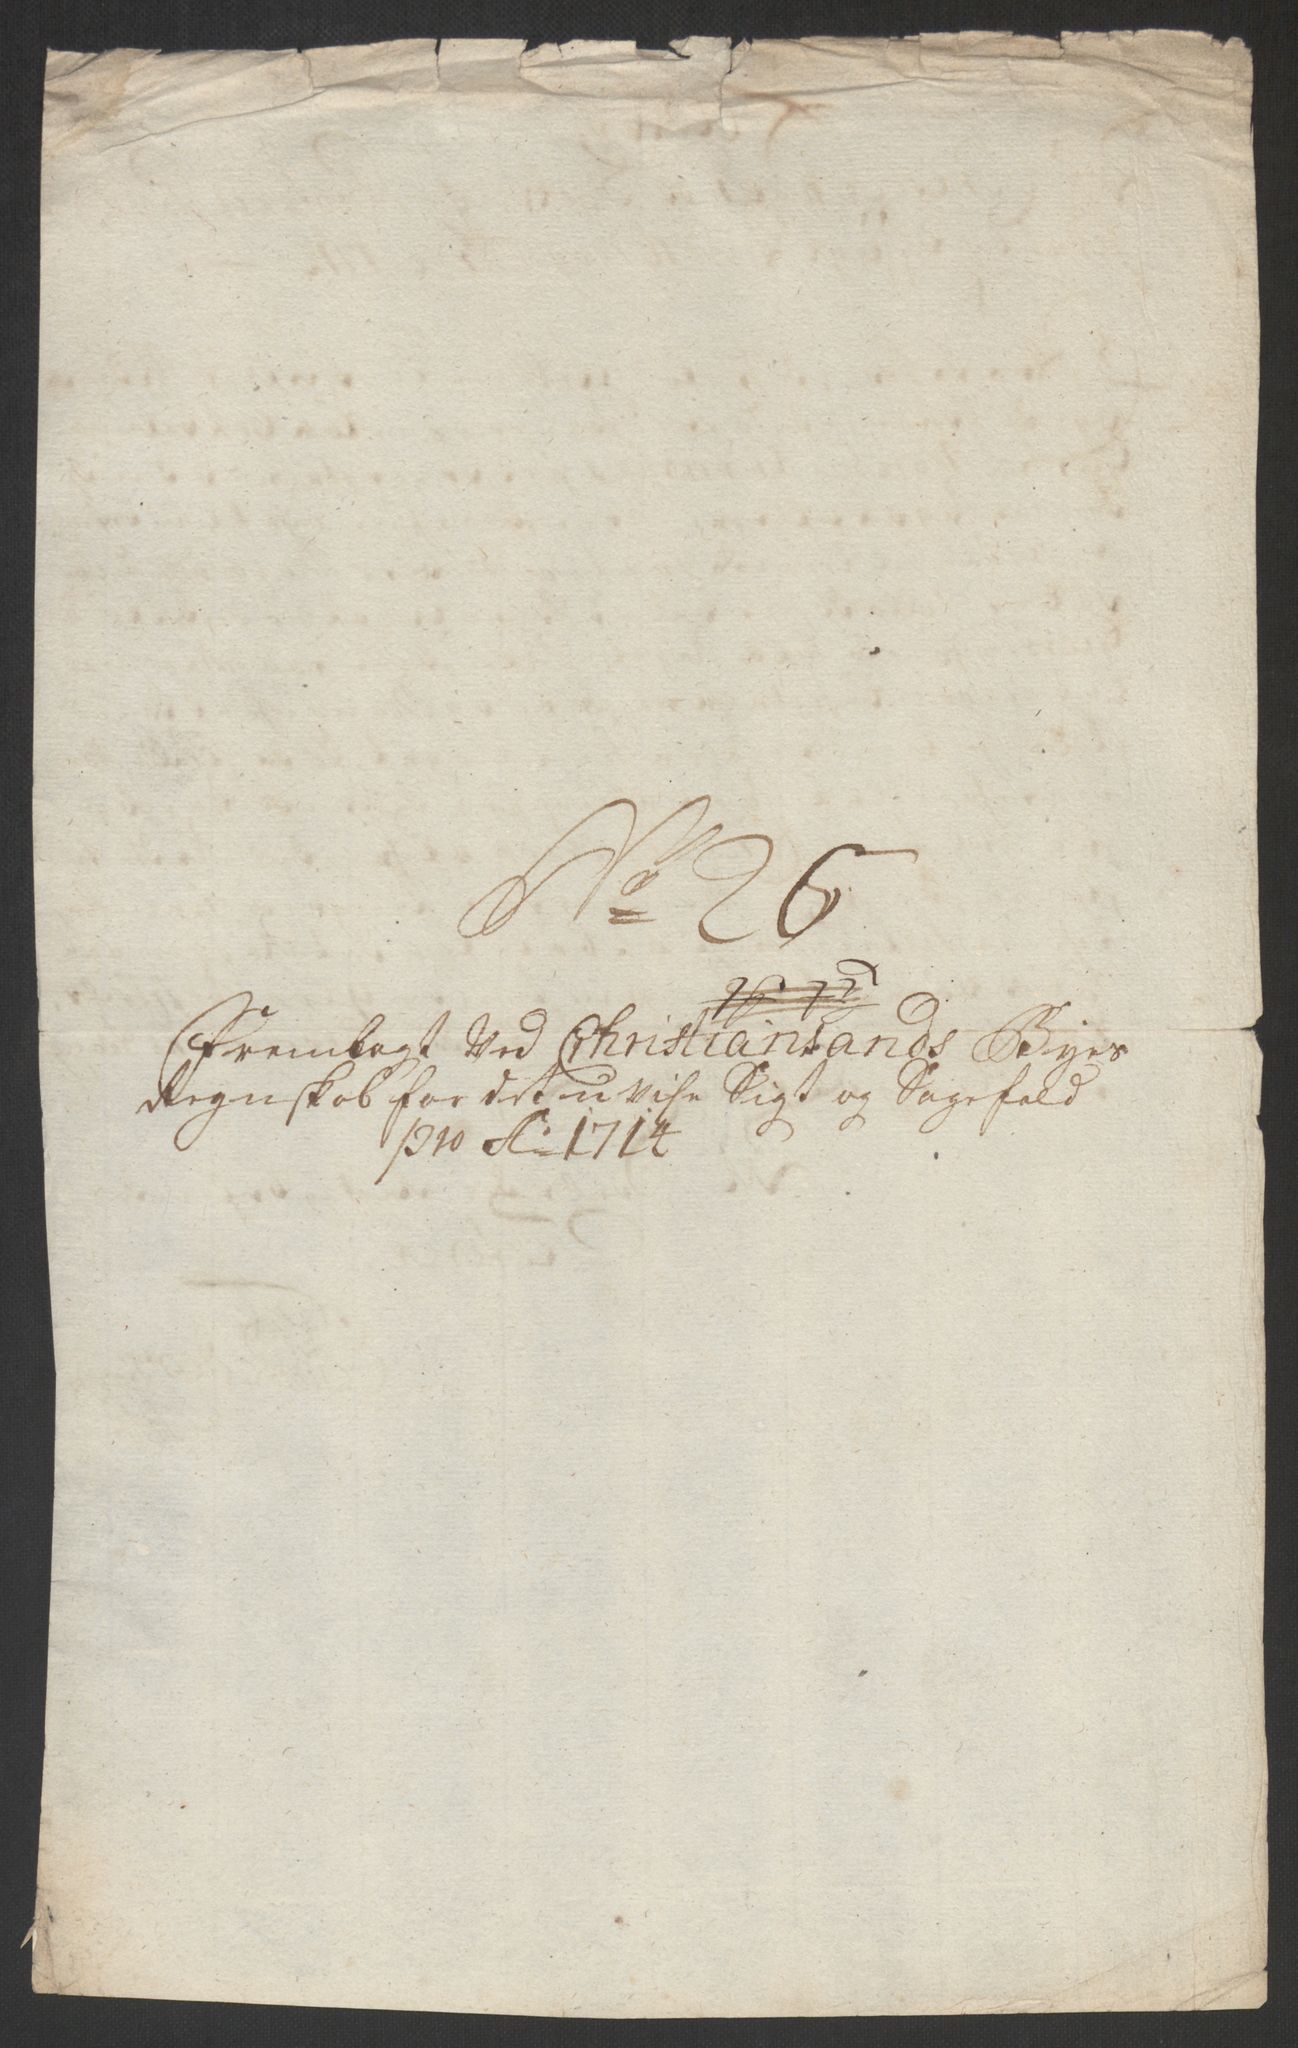 No 26
Fremlagt Ved Christiansands Byes
Regnskab for det u vise Sigt og Sagefald
pro Ao 1714